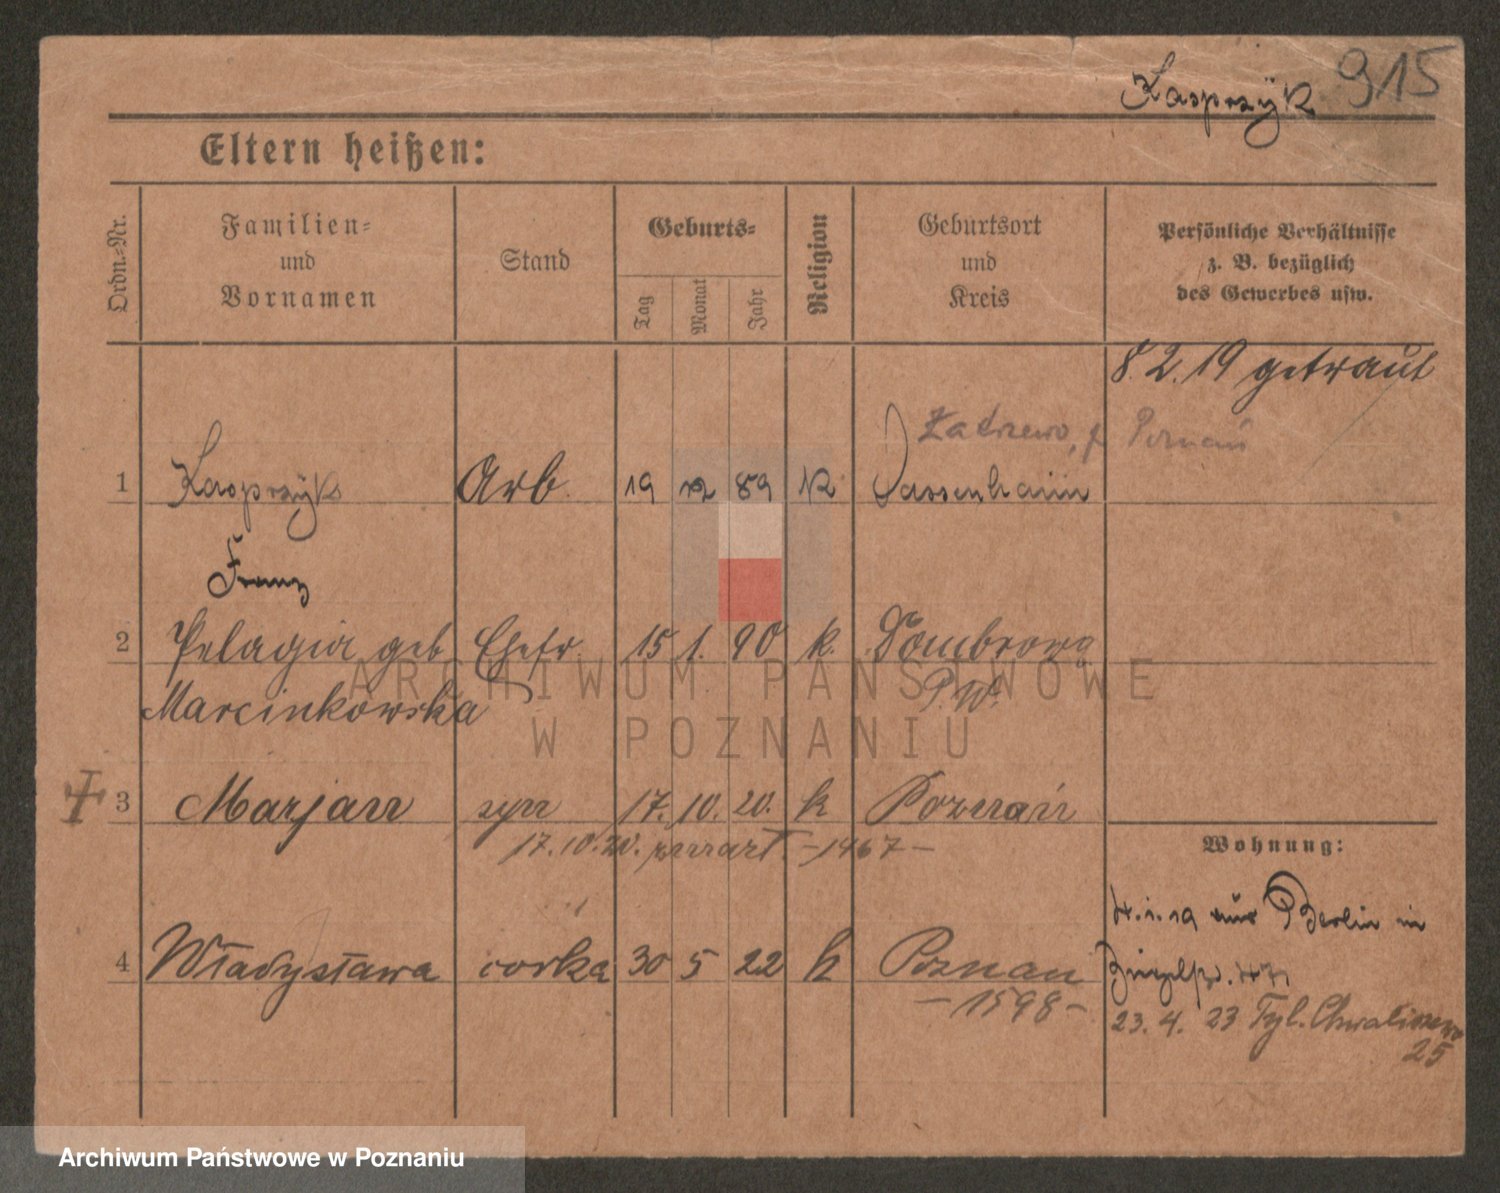 Kasprzÿk 915
Eltern heißen:
Ordn.-Nr.
Familien-
und
Vornamen
Stand
Geburts-
Tag
Monat
Jahr
Religion
Geburtsort
und
Kreis
Persönliche Verhältnisse
z. B. bezüglich
des Gewerbes usw.
8. 2. 19 getraut
Zatrzewo, p Poznań
1 Kasprzÿk Arb. 19 12 89 K Sassenheim
Franz
2 Pelagia geb Ehefr. 15 1. 90 k. Dombrowa
Marcinkowska P. W.
3 Marjan syn 17. 10. 20. k Poznań
17. 10. 20. -1467-
Wohnung:
4 Władysława corka 30 5 22 k Poznań
-1598-
4.1.19 aus Berlin in
23. 4. 23 Tyl. Chwaliszewo
25
ARCHIWUM PAŃSTWOWE
W POZNANIU
Archiwum Państwowe w Poznaniu